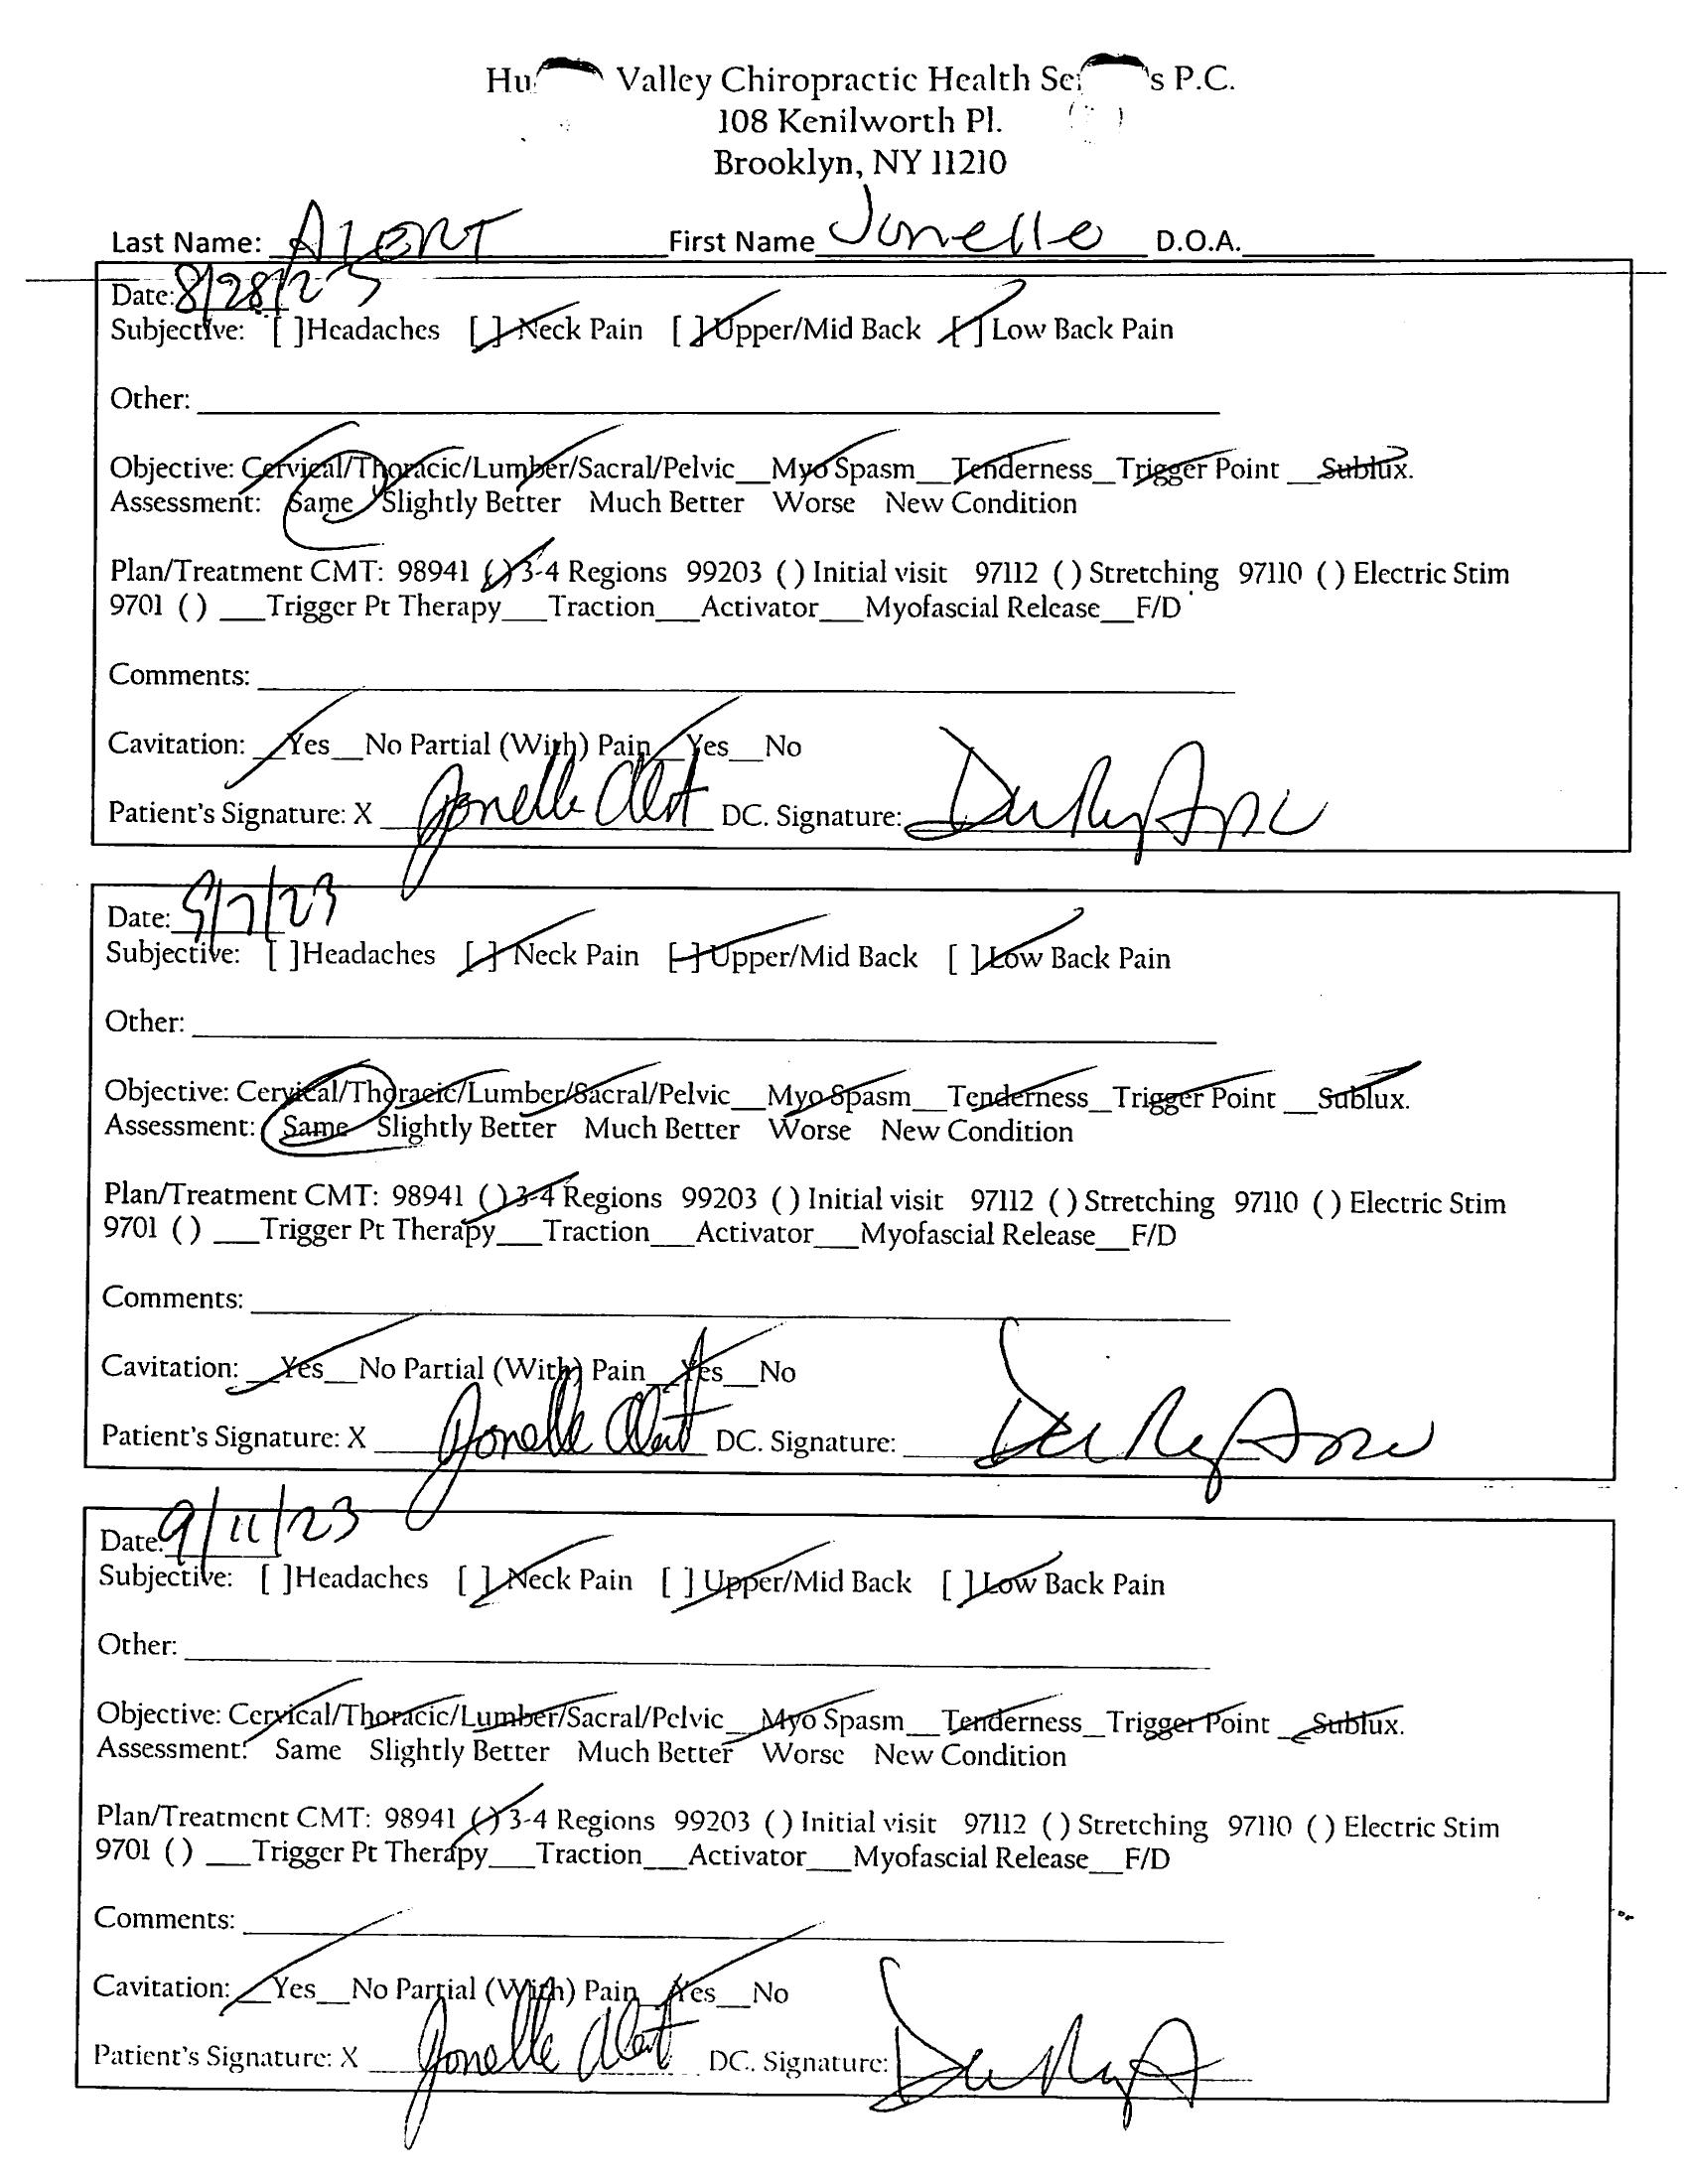 Hu Valley Chiropractic Health Ser 's P.C.
108 Kenilworth Pl.
Brooklyn, NY 11210
Last Name: Alert First Name Jonelle D.O.A.
Date: 8/28/23
Subjective: [ ]Headaches [ ] Neck Pain [ ] Upper/Mid Back [ ] Low Back Pain
Other:
Objective: Cervical/Thoracic/Lumber/Sacral/Pelvic__Myo Spasm__Tenderness_Trigger Point __Sublux.
Assessment: Same Slightly Better Much Better Worse New Condition
Plan/Treatment CMT: 98941 ( ) 3-4 Regions 99203 ( ) Initial visit 97112 ( ) Stretching 97110 ( ) Electric Stim
9701 ( ) ___Trigger Pt Therapy___Traction___Activator___Myofascial Release__F/D
Comments:
Cavitation: __Yes__No Partial (With) Pain__Yes__No
Patient's Signature: X Jonelle Alert DC. Signature:
Date: 9/7/23
Subjective: [ ]Headaches [ ] Neck Pain [ ] Upper/Mid Back [ ] Low Back Pain
Other:
Objective: Cervical/Thoracic/Lumber/Sacral/Pelvic__Myo Spasm__Tenderness_Trigger Point __Sublux.
Assessment: Same Slightly Better Much Better Worse New Condition
Plan/Treatment CMT: 98941 ( ) 3-4 Regions 99203 ( ) Initial visit 97112 ( ) Stretching 97110 ( ) Electric Stim
9701 ( ) ___Trigger Pt Therapy___Traction___Activator___Myofascial Release__F/D
Comments:
Cavitation: __Yes__No Partial (With) Pain__Yes__No
Patient's Signature: X Jonelle Alert DC. Signature:
Date: 9/11/23
Subjective: [ ]Headaches [ ] Neck Pain [ ] Upper/Mid Back [ ] Low Back Pain
Other:
Objective: Cervical/Thoracic/Lumber/Sacral/Pelvic__Myo Spasm__Tenderness_Trigger Point __Sublux.
Assessment: Same Slightly Better Much Better Worse New Condition
Plan/Treatment CMT: 98941 ( ) 3-4 Regions 99203 ( ) Initial visit 97112 ( ) Stretching 97110 ( ) Electric Stim
9701 ( ) ___Trigger Pt Therapy___Traction___Activator___Myofascial Release__F/D
Comments:
Cavitation: __Yes__No Partial (With) Pain__Yes__No
Patient's Signature: X Jonelle Alert DC. Signature: